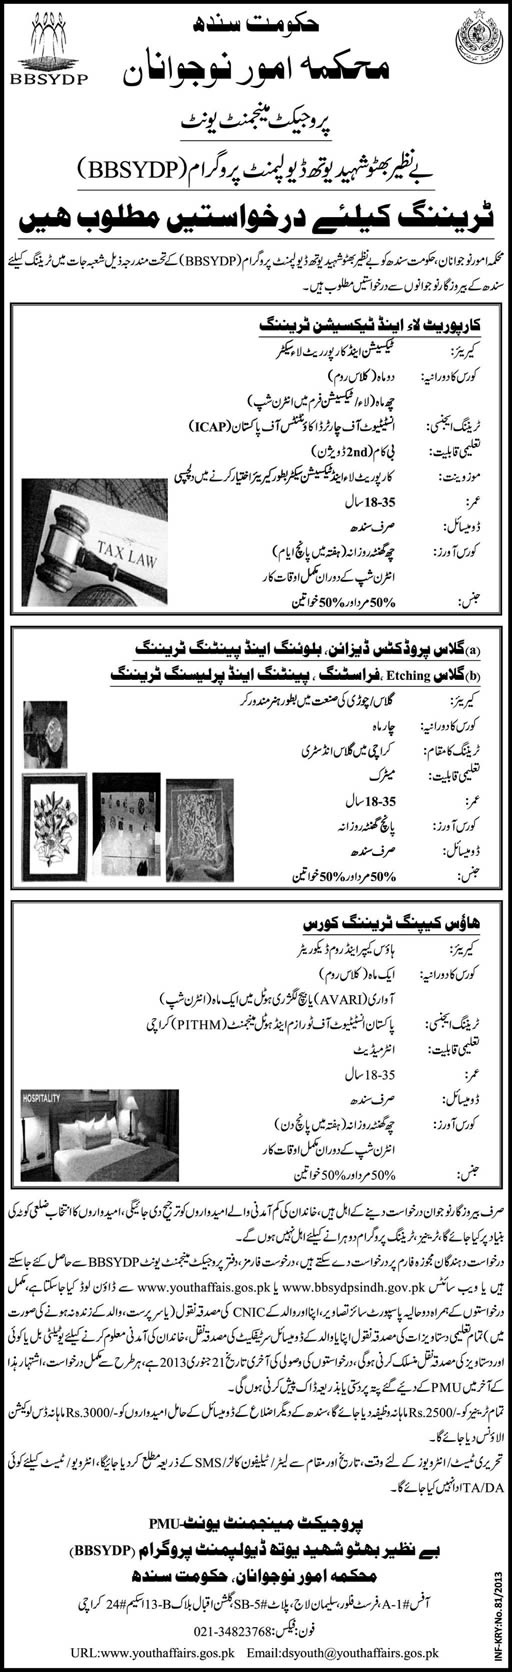 حکومت سندھ
محکمہ امور نوجوانان
BBSYDP
پروجیکٹ مینجمنٹ یونٹ
بے نظیر بھٹو شہید یوتھ ڈیولپمنٹ پروگرام (BBSYDP)
ٹریننگ کیلئے درخواستیں مطلوب ھیں
محکمہ امور نوجوانان، حکومت سندھ کو بے نظیر بھٹو شہید یوتھ ڈیولپمنٹ پروگرام (BBSYDP) کے تحت مندرجہ ذیل شعبہ جات میں ٹریننگ کیلئے
سندھ کے بیروزگار نوجوانوں سے درخواستیں مطلوب ہیں۔
کارپوریٹ لاء اینڈ ٹیکسیشن ٹریننگ
کیریئر: ٹیکسیشن اینڈ کارپوریٹ لاء سیکٹر
کورس کا دورانیہ: دو ماہ (کلاس روم)
چھ ماہ (لاء/ٹیکسیشن فرم میں انٹرن شپ)
ٹریننگ ایجنسی: انسٹیٹیوٹ آف چارٹرڈ اکاؤنٹنٹس آف پاکستان (ICAP)
تعلیمی قابلیت: بی کام (2nd ڈویژن)
موزونیت: کارپوریٹ لاء اینڈ ٹیکسیشن سیکٹر بطور کیریئر اختیار کرنے میں دلچسپی
عمر: 18-35 سال
ڈومیسائل: صرف سندھ
کورس آورز: چھ گھنٹہ روزانہ (ہفتہ میں پانچ ایام)
انٹرن شپ کے دوران مکمل اوقات کار
جنس: 50% مرد اور 50% خواتین
TAX LAW
(a) گلاس پروڈکٹس ڈیزائن، بلوئنگ اینڈ پینٹنگ ٹریننگ
(b) گلاس Etching، فراسٹنگ، پینٹنگ اینڈ پرلیسنگ ٹریننگ
کیریئر: گلاس/چوڑی کی صنعت میں بطور ہنر مند ورکر
کورس کا دورانیہ: چار ماہ
ٹریننگ کا مقام: کراچی میں گلاس انڈسٹری
تعلیمی قابلیت: میٹرک
عمر: 18-35 سال
کورس آورز: پانچ گھنٹہ روزانہ
ڈومیسائل: صرف سندھ
جنس: 50% مرد اور 50% خواتین
ھاؤس کیپنگ ٹریننگ کورس
کیریئر: ہاؤس کیپر اینڈ روم ڈیکوریٹر
کورس کا دورانیہ: ایک ماہ (کلاس روم)
آواری (AVARI) یا بیچ لگژری ہوٹل میں ایک ماہ (انٹرن شپ)
ٹریننگ ایجنسی: پاکستان انسٹیٹیوٹ آف ٹورازم اینڈ ہوٹل مینجمنٹ (PITHM) کراچی
تعلیمی قابلیت: انٹرمیڈیٹ
عمر: 18-35 سال
ڈومیسائل: صرف سندھ
کورس آورز: چھ گھنٹہ روزانہ (ہفتہ میں پانچ دن)
انٹرن شپ کے دوران مکمل اوقات کار
جنس: 50% مرد اور 50% خواتین
HOSPITALITY
صرف بیروزگار نوجوان درخواست دینے کے اہل ہیں، خاندان کی کم آمدنی والے امیدواروں کو ترجیح دی جائیگی، امیدواروں کا انتخاب ضلعی کوٹہ کی
بنیاد پر کیا جائے گا، ٹرینیز، ٹریننگ پروگرام دوہرانے کیلئے اہل نہیں ہوں گے۔
درخواست دہندگان مجوزہ فارم پر درخواست دے سکتے ہیں، درخواست فارمز، دفتر پروجیکٹ مینجمنٹ یونٹ BBSYDP سے حاصل کئے جاسکتے
ہیں یا ویب سائٹس www.bbsydpsindh.gov.pk یا www.youthaffais.gos.pk سے ڈاؤن لوڈ کیا جاسکتا ہے، مکمل
درخواستوں کے ہمراہ دو حالیہ پاسپورٹ سائز تصاویر، اپنا اور والد کے CNIC کی مصدقہ نقول (یا سرپرست، والد کے زندہ نہ ہونے کی صورت
میں) تمام تعلیمی دستاویزات کی مصدقہ نقول اپنا یا والد کے ڈومیسائل سرٹیفکیٹ کی مصدقہ نقل، خاندان کی آمدنی معلوم کرنے کیلئے یوٹیلٹی بل یا کوئی
اور دستاویز کی مصدقہ نقل منسلک کرنی ہوگی، درخواستوں کی وصولی کی آخری تاریخ 21 جنوری 2013 ہے، ہر طرح سے مکمل درخواست، اشتہار ہذا
کے آخر میں PMU کے دیئے گئے پتہ پر دستی یا بذریعہ ڈاک پیش کرنی ہوگی۔
تمام ٹرینیز کو Rs.2500/- ماہانہ وظیفہ دیا جائے گا، سندھ کے دیگر اضلاع کے ڈومیسائل کے حامل امیدواروں کو Rs.3000/- ماہانہ ڈس لوکیشن
الاؤنس دیا جائے گا۔
تحریری ٹیسٹ/انٹرویوز کے لئے وقت، تاریخ اور مقام سے لیٹر/ٹیلیفون کالز/SMS کے ذریعہ مطلع کردیا جائیگا، انٹرویو/ٹیسٹ کیلئے کوئی
TA/DA ادا نہیں کیا جائے گا۔
پروجیکٹ مینجمنٹ یونٹ-PMU
بے نظیر بھٹو شھید یوتھ ڈیولپمنٹ پروگرام (BBSYDP)
محکمہ امور نوجوانان، حکومت سندھ
آفس #A-1، فرسٹ فلور، سلیمان لاج، پلاٹ #SB-5 گلشن اقبال بلاک 13-B اسکیم #24 کراچی
فون: فیکس: 021-34823768
URL:www.youthaffairs.gos.pk Email:dsyouth@youthaffairs.gos.pk
INF-KRY:No.81/2013